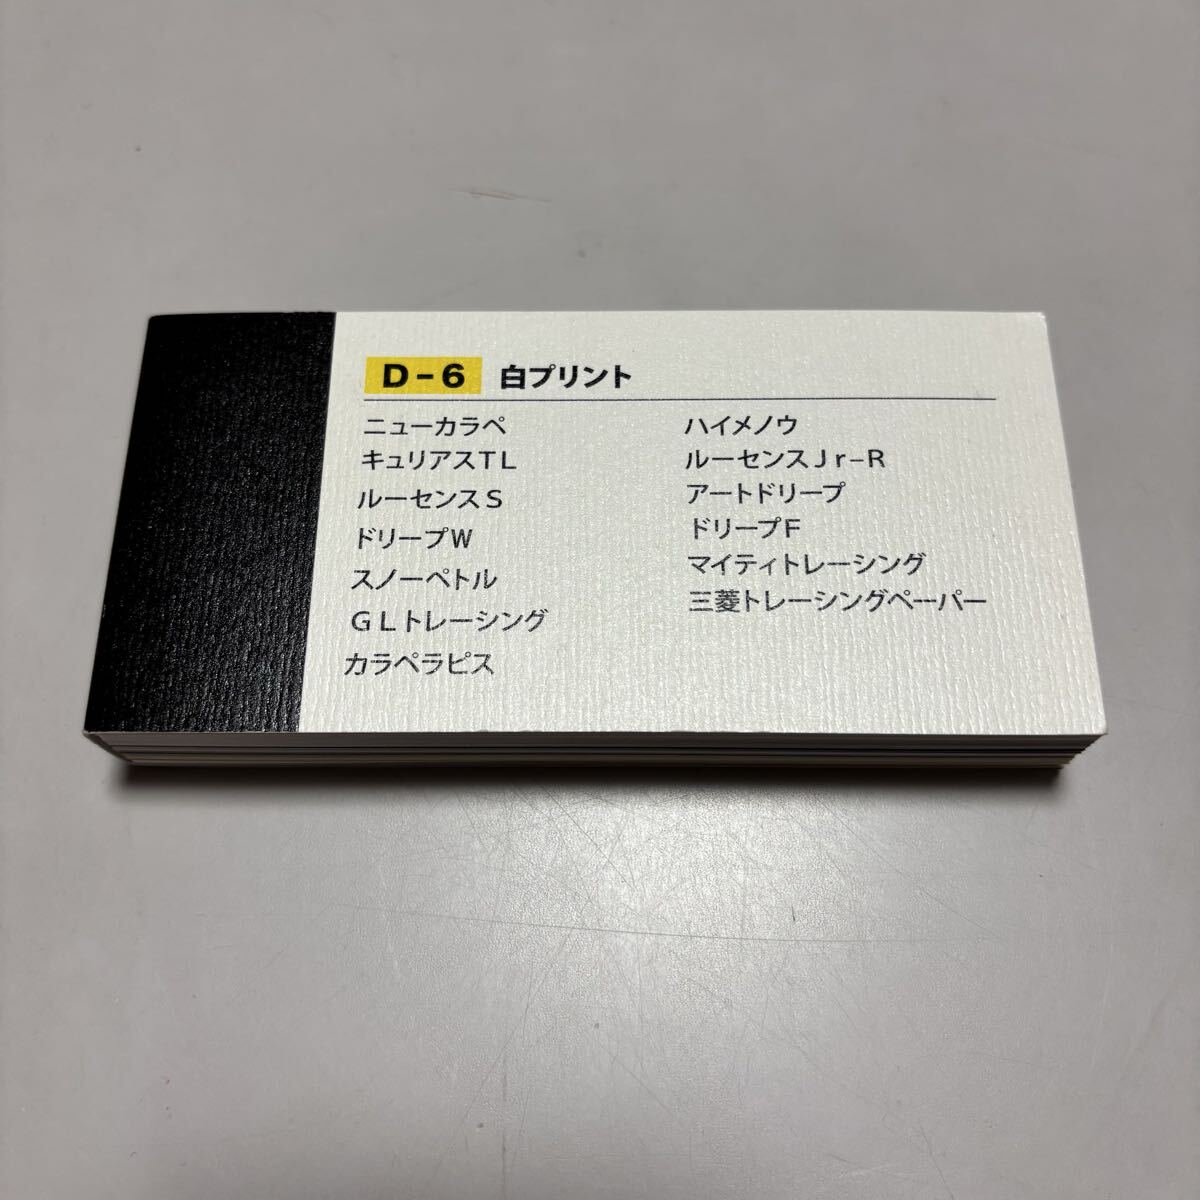 D-6 白プリント
ニューカラペ
キュリアスTL
ルーセンスS
ドリープW
スノーペトル
GLトレーシング
カラペラピス
ハイメノウ
ルーセンスJr-R
アートドリープ
ドリープF
マイティトレーシング
三菱トレーシングペーパー